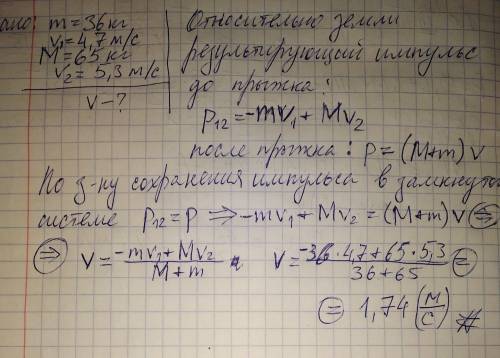 ано: m = 36 кг
v₁ = 4,7 м/с
M = 65 кг
v₂ = 5,3 м/с
V - ?
Относительно земли
результирующий импульс
до прыжка:
p₁₂ = -mv₁ + Mv₂
после прыжка: p = (M+m)v
По з-ну сохранения импульса в замкнутой
системе p₁₂ = p ⇒ -mv₁ + Mv₂ = (M+m)v ⇒
⇒ V = -mv₁ + Mv₂ / M + m V = -36 · 4,7 + 65 · 5,3 / 36 + 65 =
= 1,74 (м/с) #